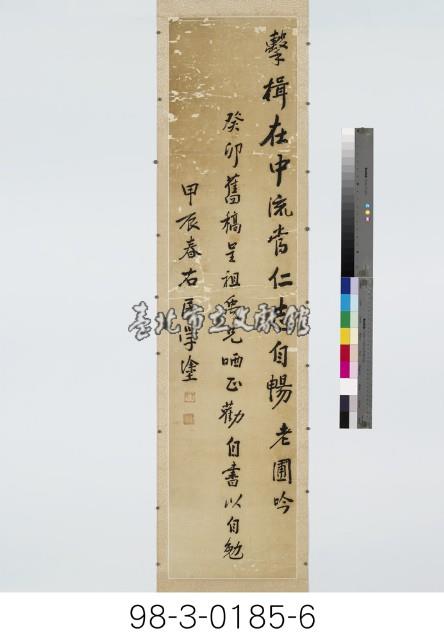 擊楫在中流當仁士自暢 老圃吟
癸卯舊稿呈祖兄哂正勸自書以自勉
甲辰春右民學塗
臺北市立文獻館
98-3-0185-6